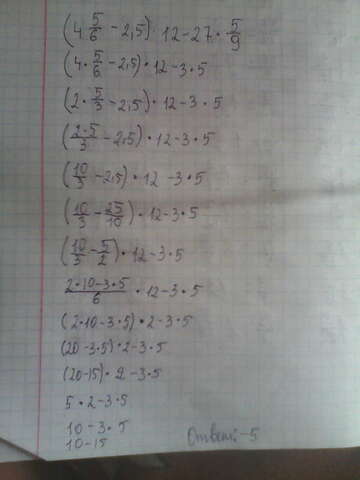 (4·5/6 - 2,5)·12-27·5/9
(4·5/6 - 2,5)·12-3·5
(2·5/3 - 2,5)·12-3·5
(2·5/3 - 2,5)·12-3·5
(10/3 - 2,5)·12-3·5
(10/3 - 25/10)·12-3·5
(10/3 - 5/2)·12-3·5
2·10-3·5/6·12-3·5
(2·10-3·5)·2-3·5
(20-3·5)·2-3·5
(20-15)·2-3·5
5·2-3·5
10-3·5
10-15
Ответ: -5